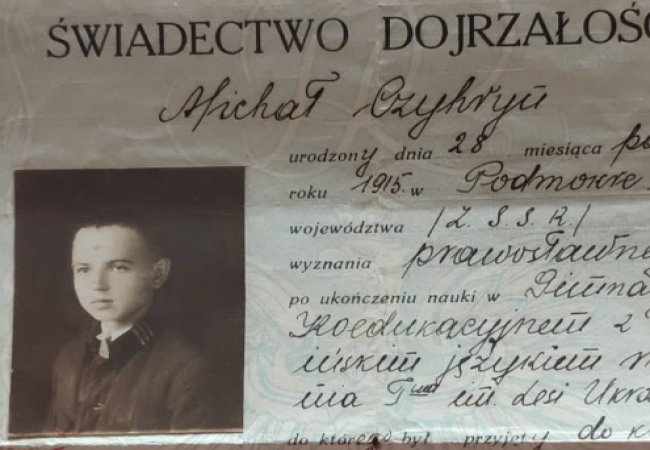 ŚWIADECTWO DOJRZAŁOŚC
Michał Czyhryn
urodzony dnia 28 miesiąca pa
roku 1915. w Podmokre
województwa /Z. S. S. R./
wyznania prawosławne
po ukończeniu nauki w Gimna
Koedukacyjnem z
ińskim językiem n
nia Twa im Lesi Ukra
do którego był przyjęty do k